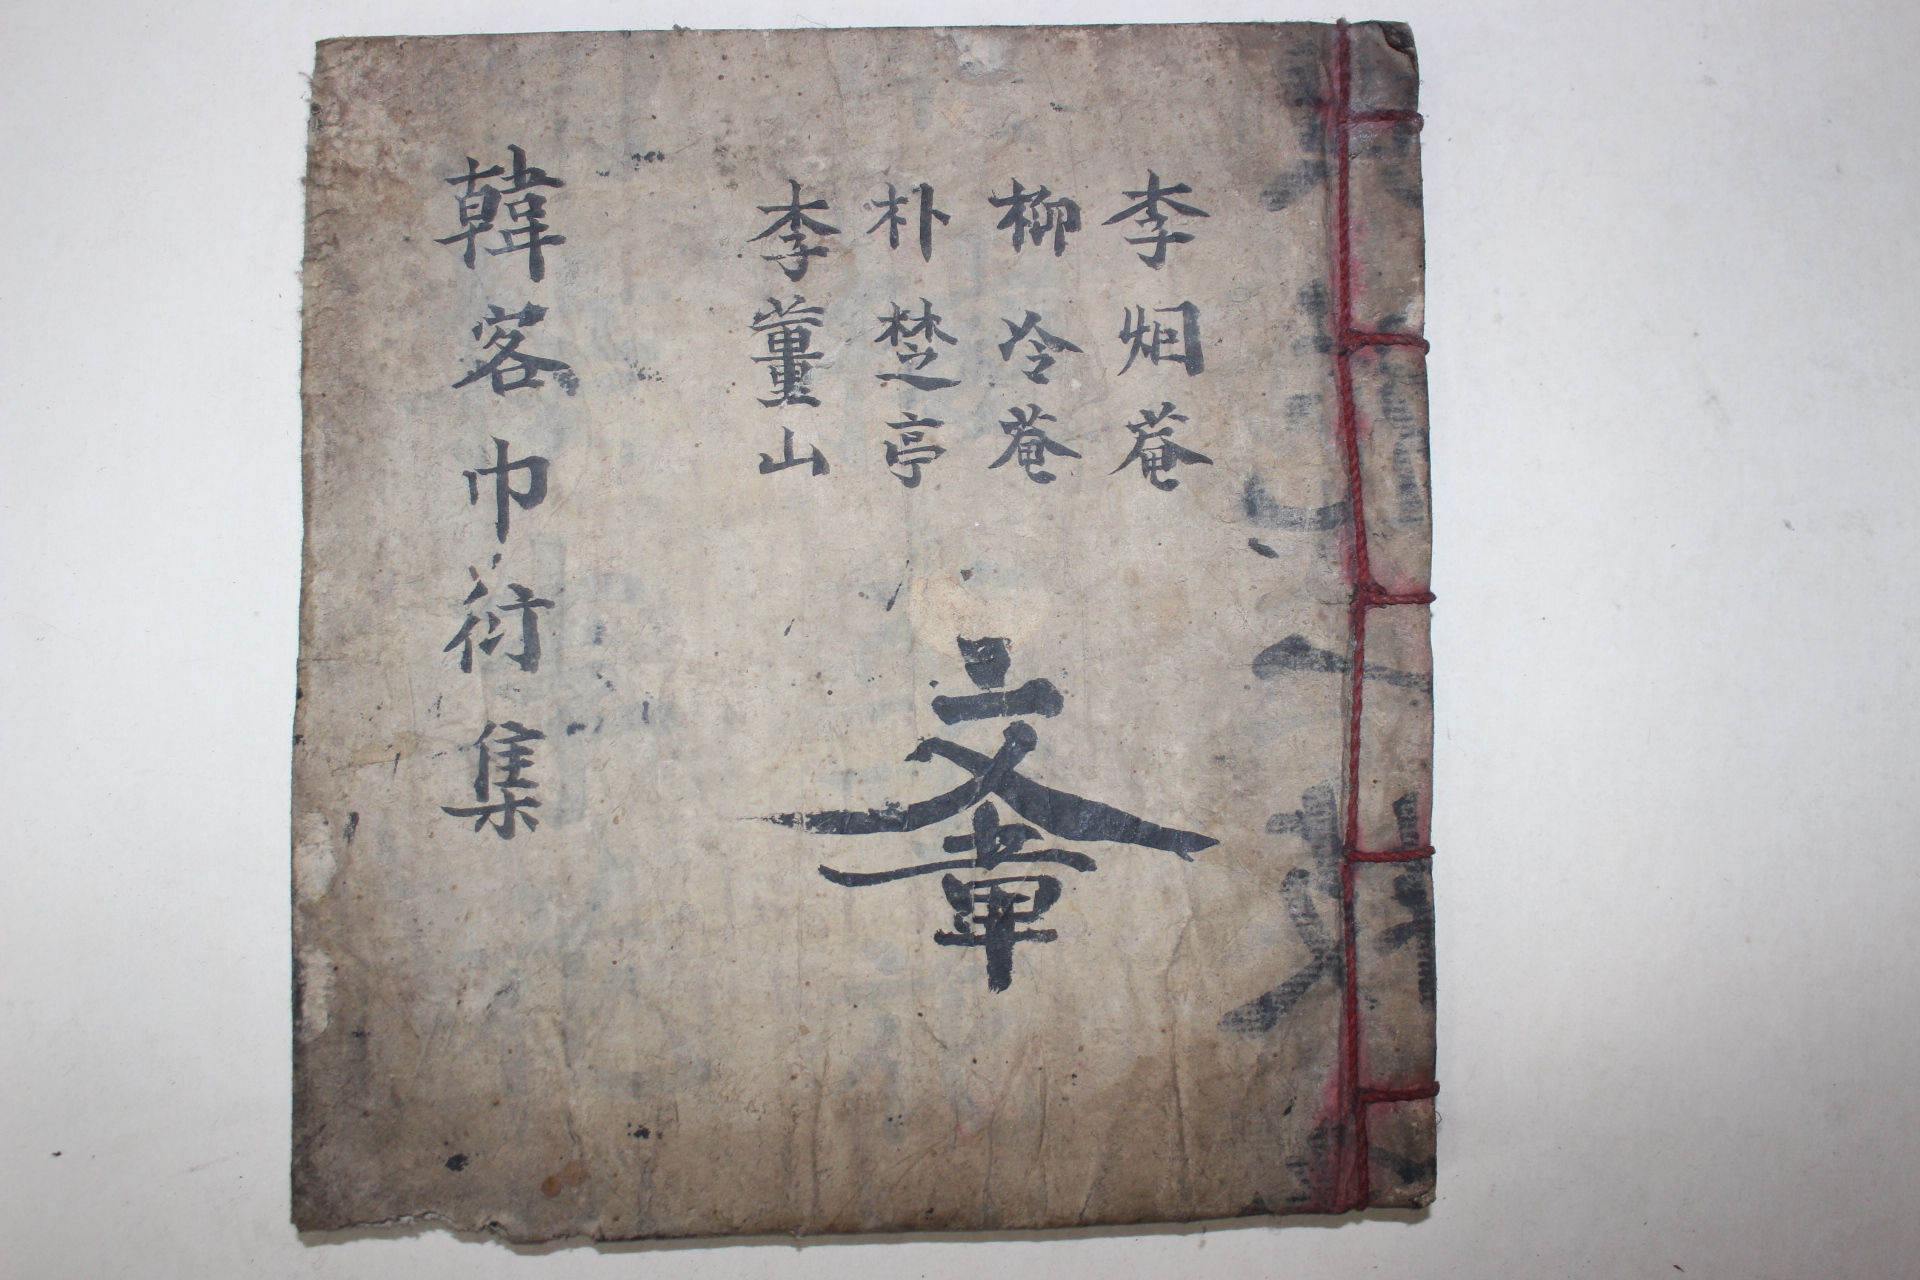 李炯菴
柳冷菴
朴楚亭
李薑山
文章
韓客巾衍集